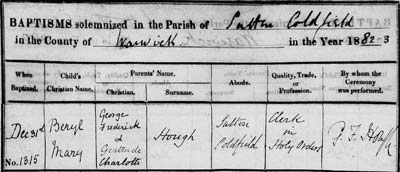 BAPTISMS solemnized in the Parish of Sutton Coldfield
in the County of Warwick in the Year 1882-3
When Baptized. Child's Christian Name. Parents' Name. Christian. Surname. Abode. Quality, Trade, or Profession. By whom the Ceremony was performed.
Dec 31st
No. 1315
Beryl
Mary
George
Frederick
&
Gertrude
Charlotte
Hough
Sutton
Coldfield
Clerk
in
Holy Orders